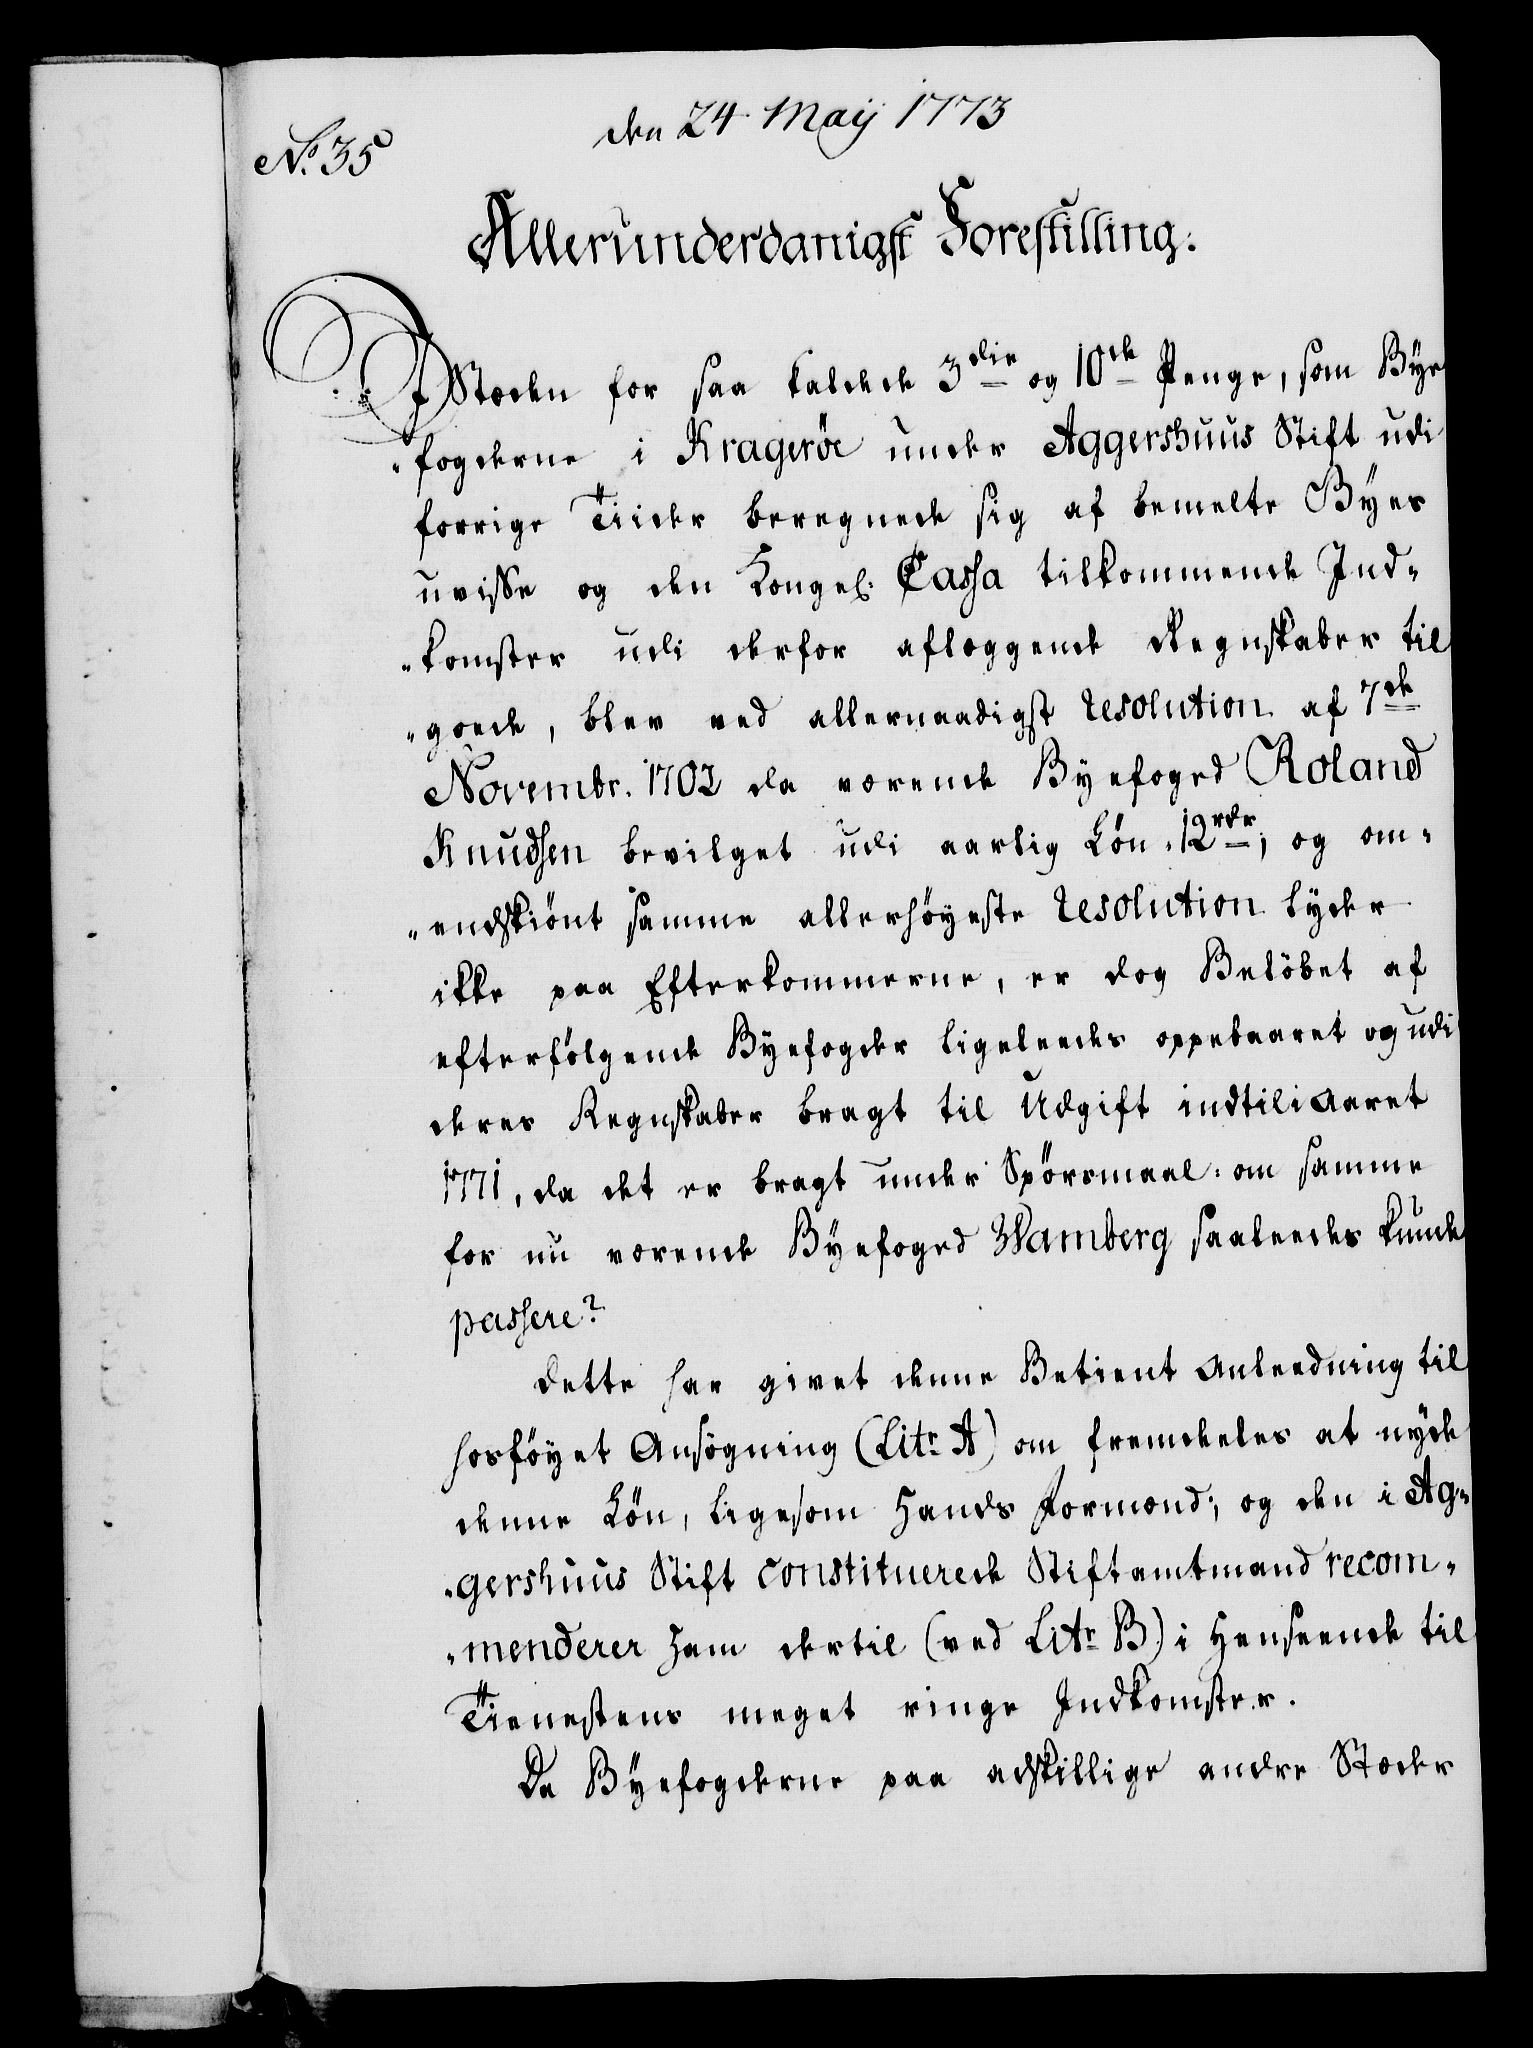 No. 35
den 24 Maij 1773
Allerunderdanigst Forestilling.
I Stæden for saa kaldede 3die og 10de Penge, som Bye
"fogderne i Kragerøe under Aggershuus Stift udi
forrige Tiider beregnede sig af bemelte Byes
uvisse og den Kongel. Cassa tilkommende Ind-
"komster udi derfor aflæggende Regnskaber til
"goede, blev ved allernaadigst resolution af 7de
Novembr. 1702 da værende Byefoged Roland
Knudsen bevilget udi aarlig Løn 12 rdr; og om-
"endskiönt samme allerhöyeste resolution lyder
ikke paa Efterkommerne, er dog Belöbet af
efterfölgende Byefogder ligeleedes oppebaaret og udi
deres Regnskaber bragt til Udgift indtil i Aaret
1771, da det er bragt under Spörsmaal: om samme
for nu værende Byefoged Wamberg saaleedes kunde
passere?
Dette har givet denne Betient Anleedning til
hosföyet Ansögning (Litr. A) om fremdeeles at nyde
denne Løn, ligesom Hands Formænd; og den i Ag-
"gershuus Stift constituerede Stiftamtmand recom-
"menderer ham dertil (ved Litr. B) i Henseende til
Tienestens meget ringe Indkomster.
Da Byefogderne paa adskillige andre Stæder